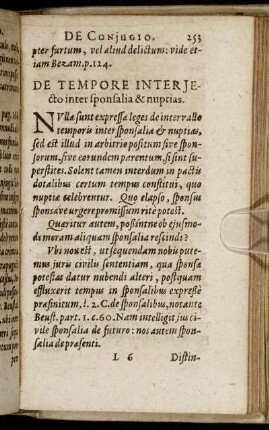 DE CONJUGIO. 253
pter furtum, vel aliud delictum: vide et-
iam Bezam. p. 124.
DE TEMPORE INTERJE-
cto inter sponsalia & nuptias.
NVllæ sunt expressæ leges de intervallo
temporis inter sponsalia & nuptias,
sed est illud in arbitrio positum sive spon-
sorum, sive eorundem parentum, si sint su-
perstites. Solent tamen interdum in pactis
dotalibus certum tempus constitui, quo
nuptiæ celebrentur. Quo elapso, sponsus
sponsave urgere promissum ritè potest.
Quæritur autem, possintne ob ejusmo-
di moram aliquam sponsalia rescindi?
Vbi non est, ut sequendam nobis pute-
mus juris civilis sententiam, qua sponsæ
potestas datur nubendi alteri, postquam
effluxerit tempus in sponsalibus expressè
præfinitum, l. 2. C. de sponsalibus, notante
Beust. part. 1. c. 60. Nam intelligit jus ci-
vile sponsalia de futuro: nos autem spon-
salia de præsenti.
L 6 Distin-